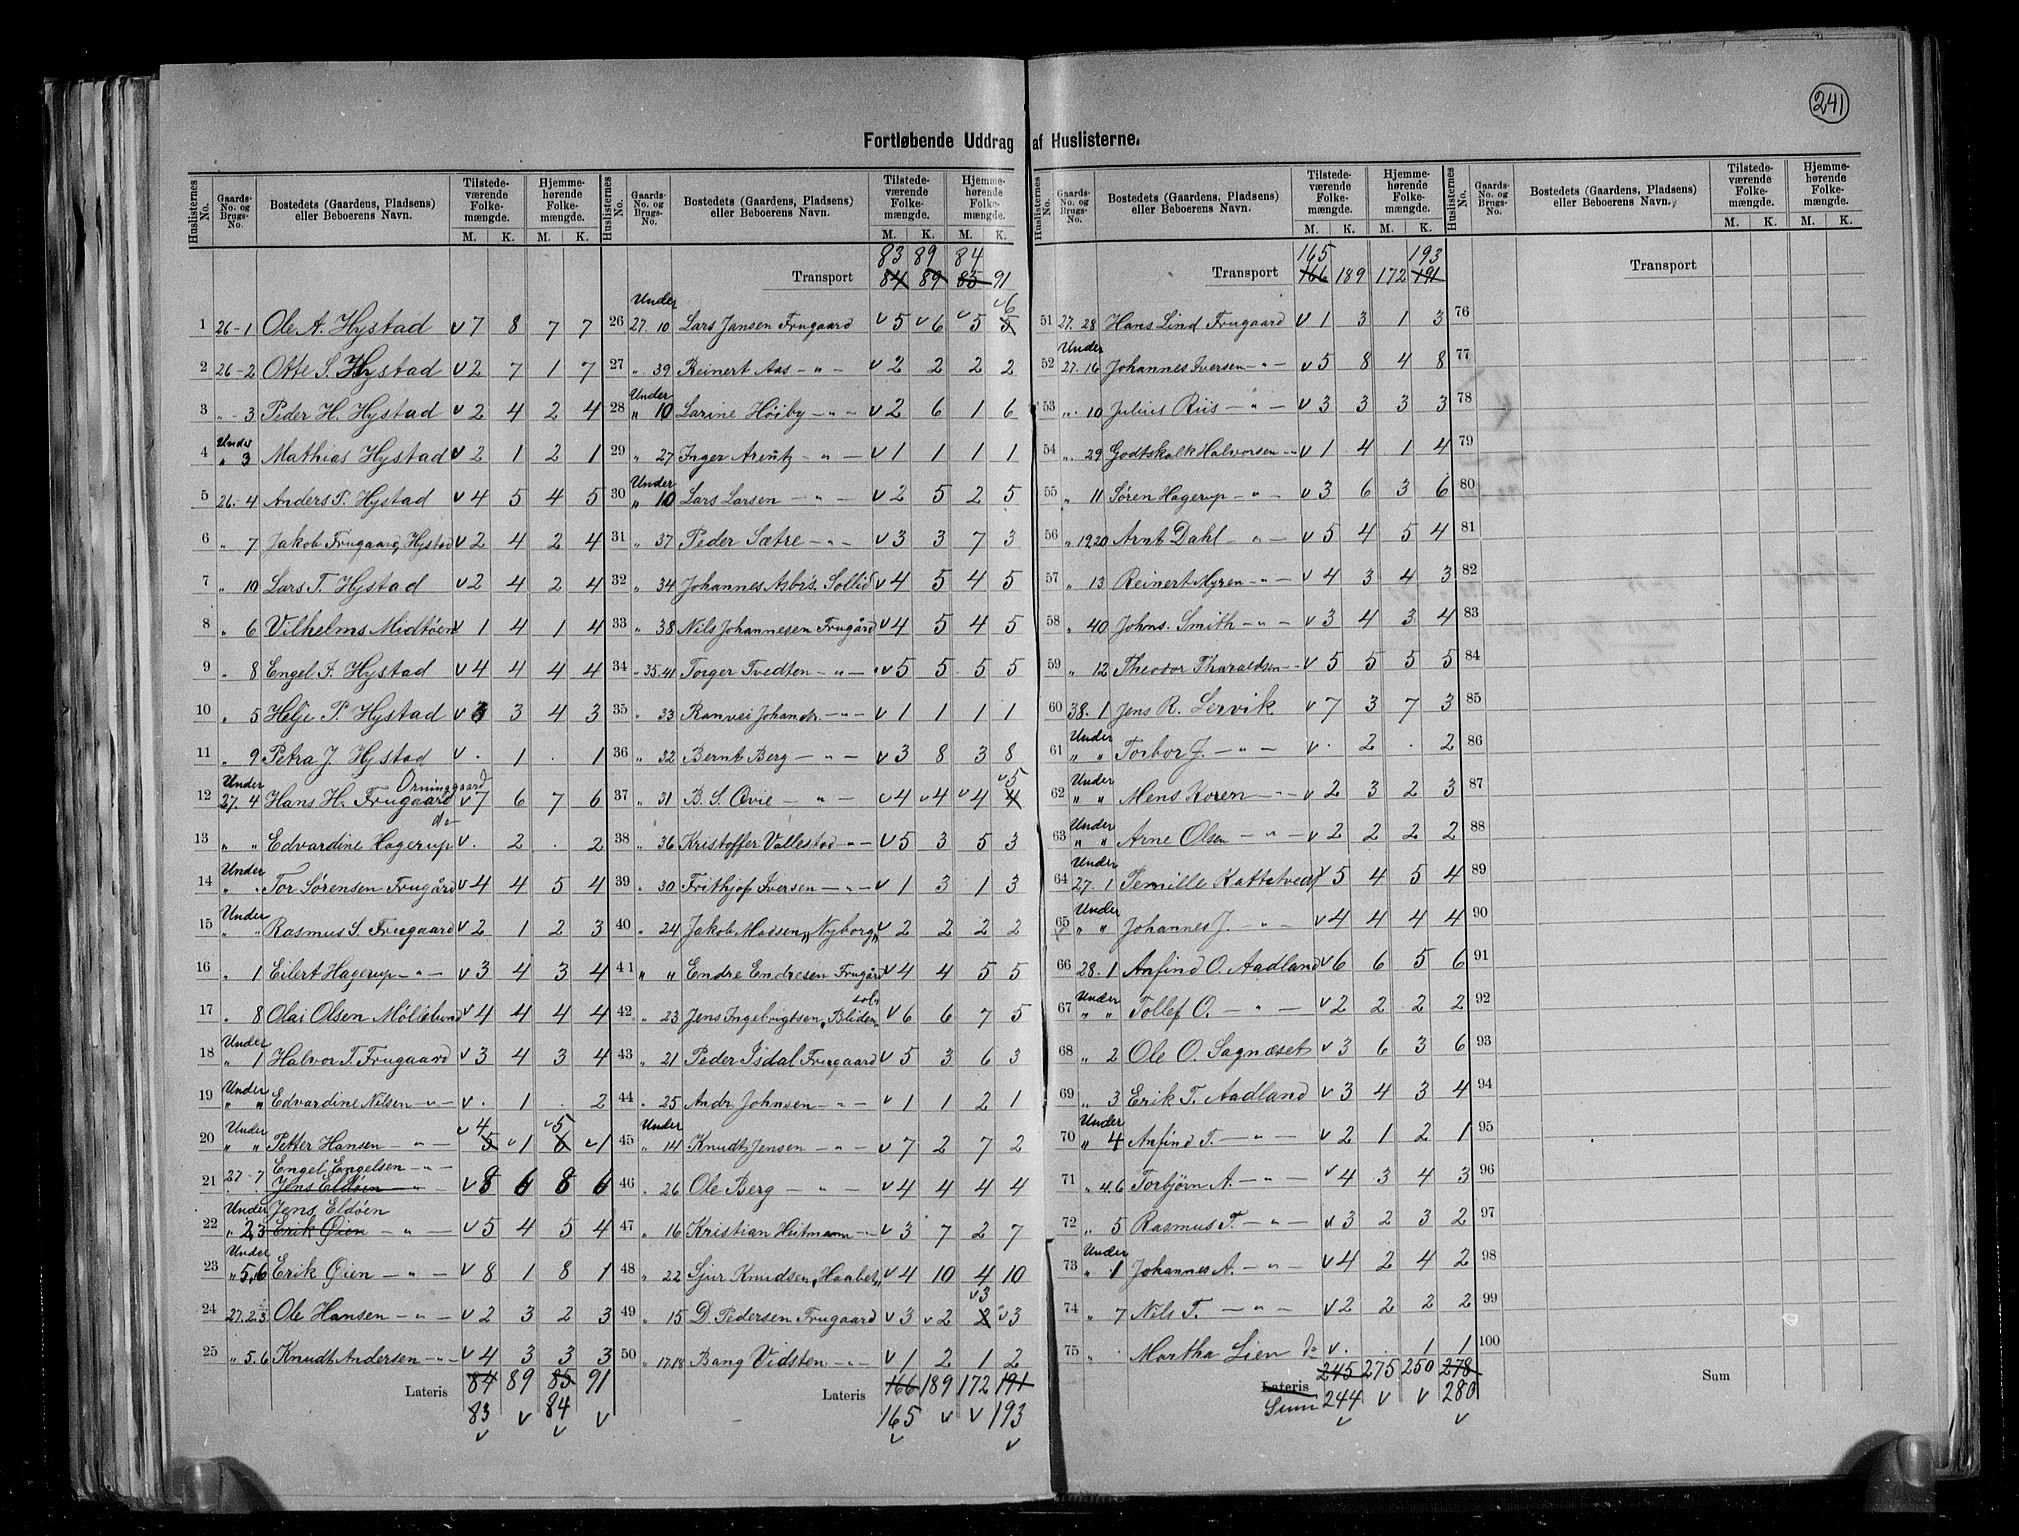 241
Fortløbende Uddrag af Huslisterne.
Huslisternes No. Gaards-No. og Brugs-No. Bostedets (Gaardens, Pladsens) eller Beboerens Navn. Tilstedeværende Folkemængde. M. K. Hjemmehørende Folkemængde. M. K.
1 26-1 Ole A. Hystad v 7 8 7 7
2 26-2 Otte S. Hystad v 2 7 1 7
3 „-3 Peder H. Hystad v 2 4 2 4
4 Under „ 3 Mathias Hystad v 2 1 2 1
5 26-4 Anders T. Hystad v 4 5 4 5
6 „ 7 Jakob Frugaard, Hystad v 2 4 2 4
7 „ 10 Lars T. Hystad v 2 4 2 4
8 „ 6 Vilhelms Midtøen v 1 4 1 4
9 „ 8 Engel F. Hystad v 4 4 4 4
10 „ 5 Helje P. Hystad v 3 3 4 3
11 „ 9 Petra J. Hystad v . 1 . 1
12 Under 27. 4 Hans H. Frugaard Orninggaard v 7 6 7 6
13 „ „ Edvardine Hagerup do v . 2 . 2
14 Under „ „ Tor Sørensen Frugård v 4 4 5 4
15 Under „ „ Rasmus S. Frugaard v 2 1 2 3
16 „ 1 Eilert Hagerup – „ – v 3 4 3 4
17 „ 8 Olai Olsen Mølielund v 4 4 4 4
18 Under „ 1 Halvor T. Frugaard v 3 4 3 4
19 Under „ „ Edvardine Nilsen – „ – v . 1 . 2
20 Under „ „ Petter Hansen – „ – v 4 5 v 1 v 5 6 v 1
21 27-7 Engel Engelsen – „ – Jens Eldøen v 8 6 8 6
22 Under „ 2,3 Jens Eldøen Erik Øien – „ – v 5 4 5 4
23 Under „ 5,6 Erik Øien – „ – v 8 1 8 1
24 27.2.3 Ole Hansen – „ – v 2 3 2 3
25 „ 5.6 Knudt Andersen – „ – v 4 3 3 3
Lateris 84 89 85 91
83 v 84 v
v v
Huslisternes No. Gaards-No. og Brugs-No. Bostedets (Gaardens, Pladsens) eller Beboerens Navn. Tilstedeværende Folkemængde. M. K. Hjemmehørende Folkemængde. M. K.
83 89 84
Transport 84 89 85 91
26 Under 27. 10 Lars Jansen Frugaard v 5 v 6 v 5 v 6 5
27 „ 39 Reinert Aas – „ – v 2 2 2 2
28 Under „ 10 Larine Høiby – „ – v 2 6 1 6
29 „ 27 Inger Arentz – „ – v 1 1 1 1
30 Under „ 10 Lars Larsen – „ – v 2 5 2 5
31 „ 37 Peder Sætre – „ – v 3 3 7 3
32 „ 34 Johannes Asbrs. Sollid v 4 5 4 5
33 „ 38 Nils Johannesen Frugård v 4 5 4 5
34 „ 35.41 Torger Tvedten – „ – v 5 5 5 5
35 „ 33 Ranvei Johandr. – „ – v 1 1 1 1
36 „ 32 Bernt Berg – „ – v 3 8 3 8
37 „ 31 B. S. Øvie – „ – v 4 v 4 v 4 v 5 4
38 „ 36 Kristoffer Vallestad – „ – v 5 3 5 3
39 „ 30 Frithjof Iversen – „ – v 1 3 1 3
40 „ 24 Jakob Madsen „Nyborg„ v 2 2 2 2
41 „ „ Endre Endresen Frugård v 4 4 5 5
42 „ 23 Jens Ingebrigtsen „Blidensol„ v 6 6 7 5
43 „ 21 Peder Isdal Frugaard v 5 3 6 3
44 „ 25 Andr. Johnsen – „ – v 1 1 2 1
45 Under „ 14 Knudt Jensen – „ – v 7 2 7 2
46 „ 26 Ole Berg „ – v 4 4 4 4
47 „ 16 Kristian Heitmann – „ – v 3 7 2 7
48 „ 22 Sjur Knudsen „Haabet„ v 4 10 4 10
49 „ 15 D. Pedersen Frugaard v 3 v 2 v 3 2 v 3
50 „ 17.18 Bang Vidsten – „ – v 1 2 1 2
Lateris 166 189 172 191
165 v v 193
v v
Huslisternes No. Gaards-No. og Brugs-No. Bostedets (Gaardens, Pladsens) eller Beboerens Navn. Tilstedeværende Folkemængde. M. K. Hjemmehørende Folkemængde. M. K.
165 193
Transport 166 189 172 191
51 27. 28 Hans Lind Frugaard v 1 3 1 3
52 Under 27. 16 Johannes Iversen – „ – v 5 8 4 8
53 „ 10 Julius Riis – „ – v 3 3 3 3
54 „ 29 Godtskalk Halvorsen – „ v 1 4 1 4
55 „ 11 Søren Hagerup – „ – v 3 6 3 6
56 „ 19.20 Arnt Dahl – „ – v 5 4 5 4
57 „ 13 Reinert Myren – „ – v 4 3 4 3
58 „ 40 Johns. Smith – „ – v 3 4 3 4
59 „ 12 Theodor Tharaldsen – v 5 5 5 5
60 38. 1 Jens R. Lervik v 7 3 7 3
61 Under „ „ Torbor J. – „ – v . 2 . 2
62 Under „ „ Mens Koren – „ – v 2 3 2 3
63 Under „ „ Arne Olsen – „ – v 2 2 2 2
64 Under 27. 1 Pernille Kattetvedt v 5 4 5 4
65 Under „ „ Johannes J. – „ – v 4 4 4 4
66 28. 1 Anfind O. Aadland v 6 6 5 6
67 Under „ „ Tollef O. – „ – v 2 2 2 2
68 „ 2 Ole O. Sagnæset v 3 6 3 6
69 „ 3 Erik T. Aadland v 3 4 3 4
70 Under „ 4 Anfind T. – „ – v 2 1 2 1
71 „ 4.6 Torbjørn A. – „ – v 4 3 4 3
72 „ 5 Rasmus T. – „ – v 3 2 3 2
73 Under „ 1 Johannes A. – „ – v 4 2 4 2
74 „ 7 Nils T. – „ – v 2 2 2 2
75 „ Martha Lien do v . . 1 1
Lateris 245 275 250 278
Sum 244 v v 280
v v
Huslisternes No. Gaards-No. og Brugs-No. Bostedets (Gaardens, Pladsens) eller Beboerens Navn. Tilstedeværende Folkemængde. M. K. Hjemmehørende Folkemængde. M. K.
Transport
76
77
78
79
80
81
82
83
84
85
86
87
88
89
90
91
92
93
94
95
96
97
98
99
100
Sum